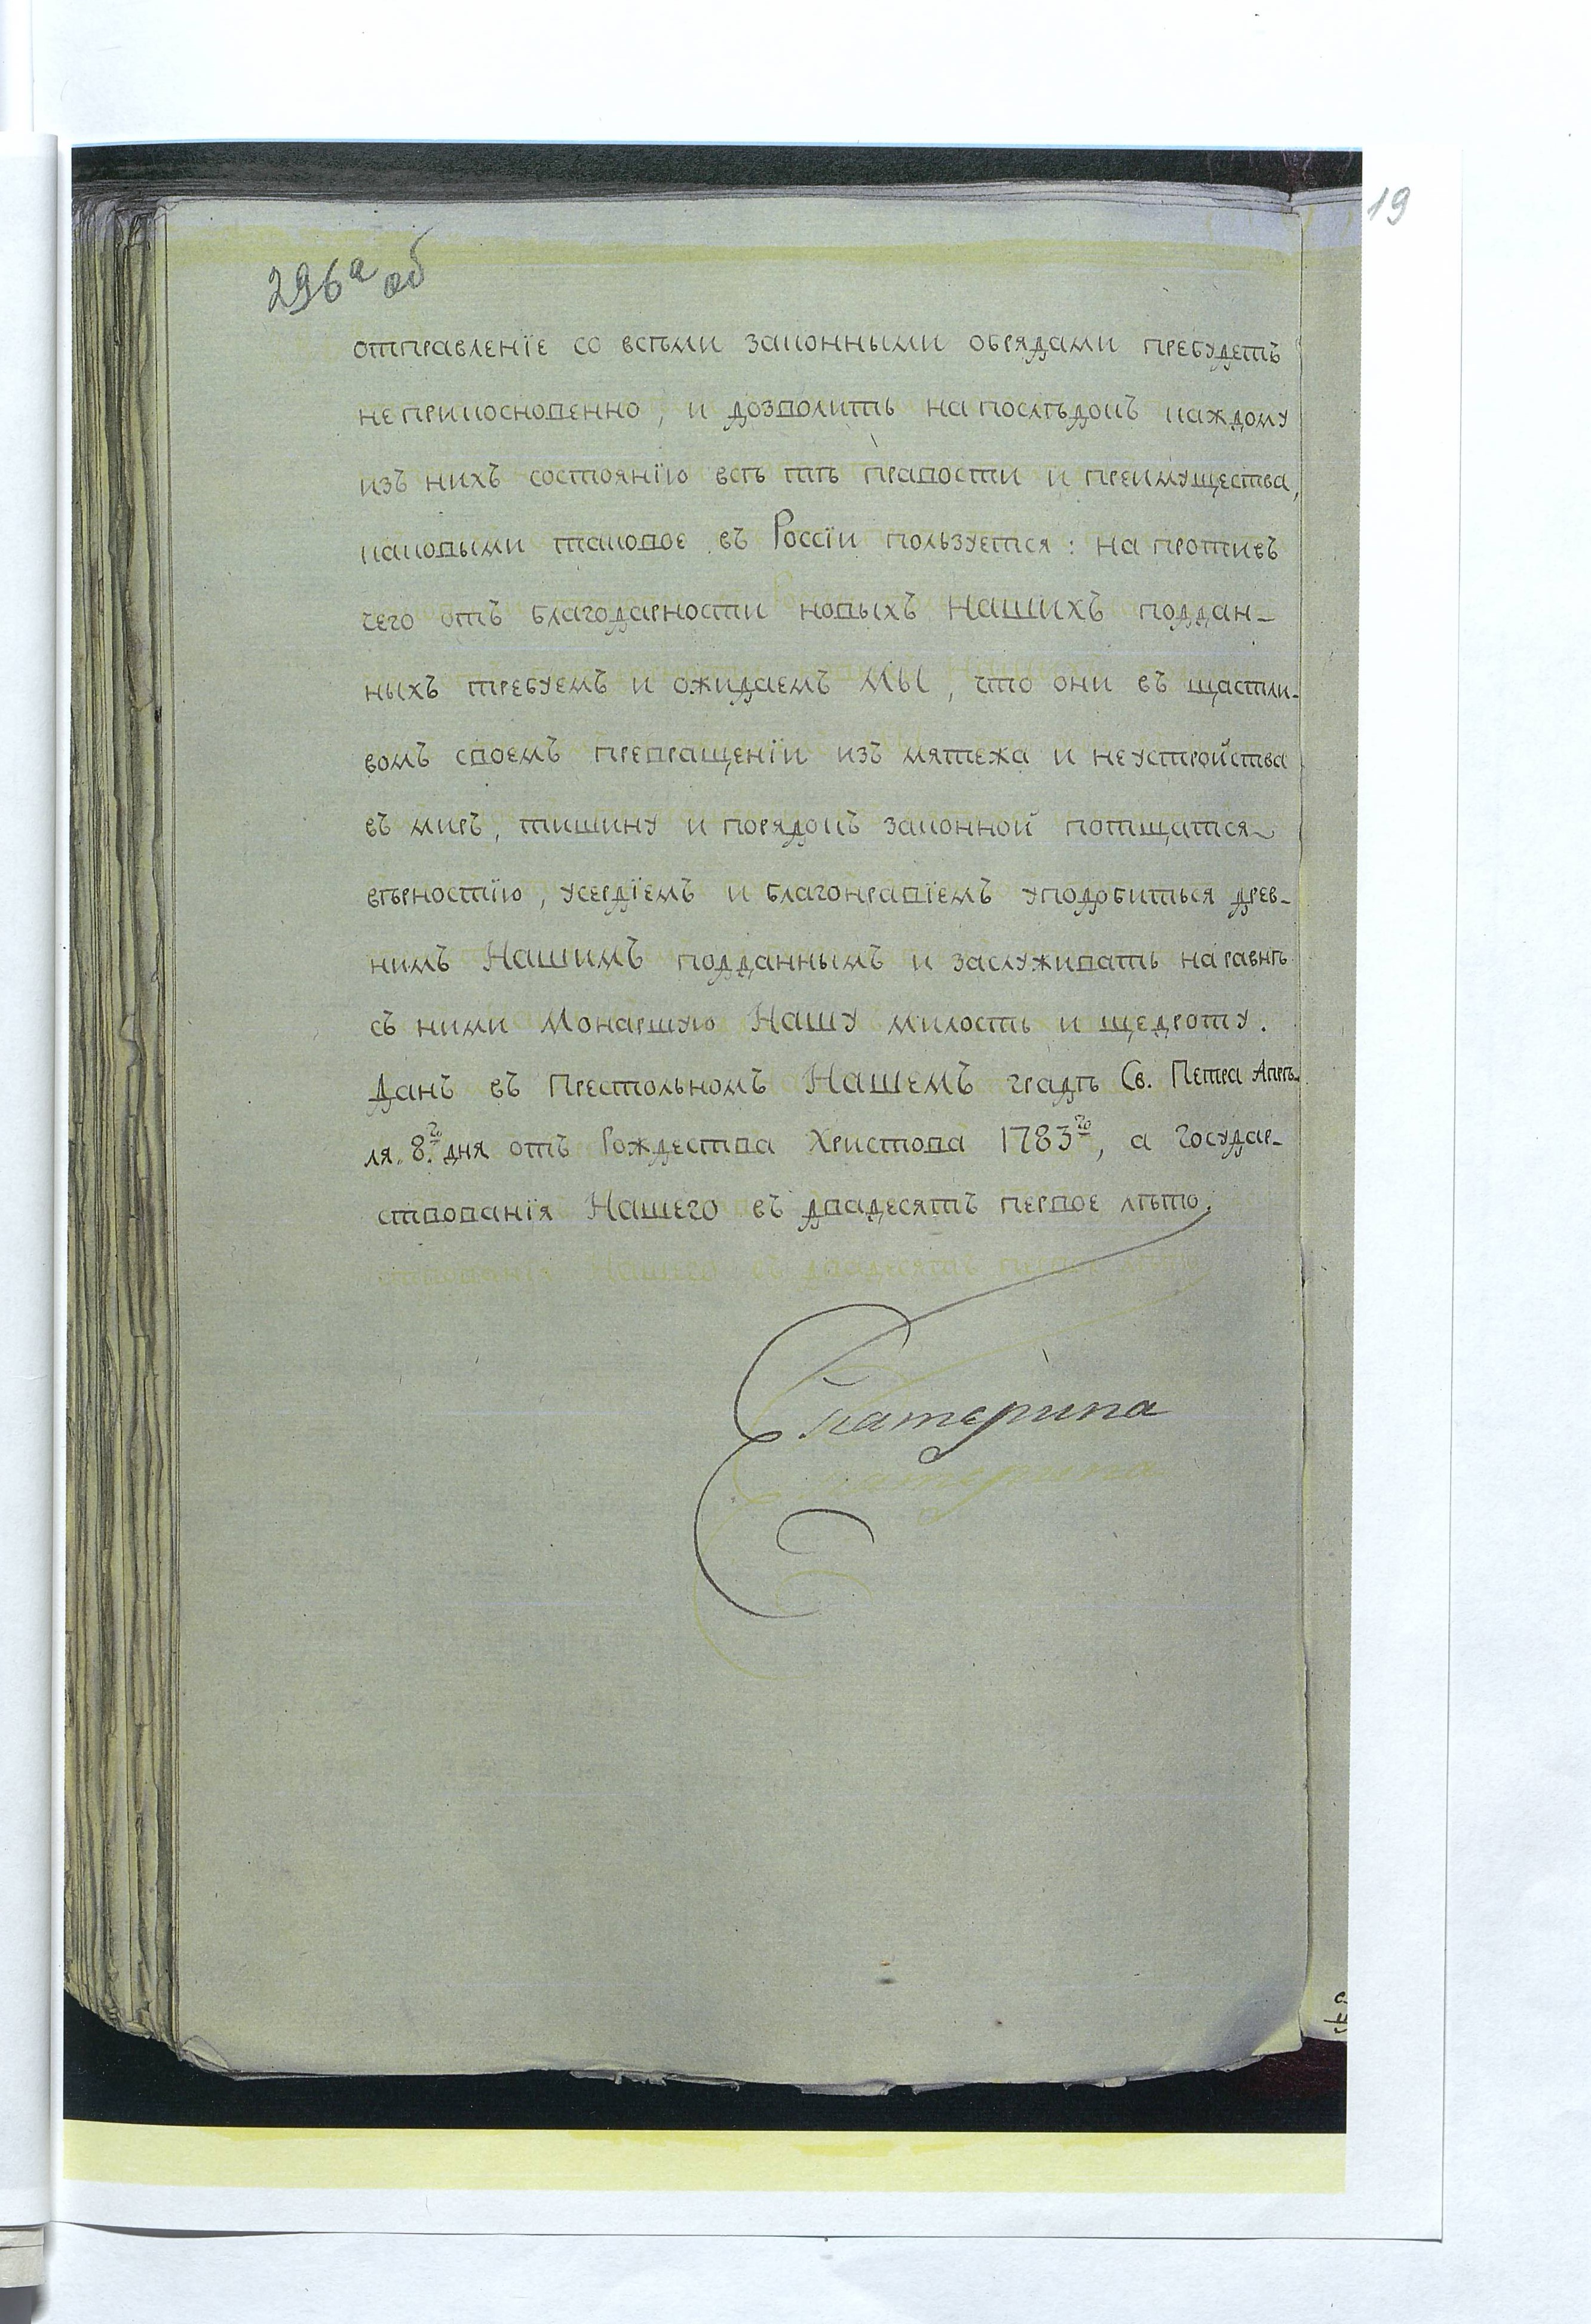 19
296а об
отправленїе со всѣми законными обрядами пребудетъ
неприкосновенно, и дозволить напослѣдокъ каждому
изъ нихъ состоянїю всѣ тѣ правости и преимущества,
каковыми таковое въ Россїи пользуется: на противъ
чего отъ благодарности новыхъ Нашихъ поддан-
ныхъ требуемъ и ожидаемъ Мы, что они въ щастли-
вомъ своемъ превращенїи изъ мятежа и неустройства
въ миръ, тишину и порядокъ законной потщатся
вѣрностїю, усердїемъ и благонравїемъ уподобиться древ-
нимъ Нашимъ подданнымъ и заслуживать наравнѣ
съ ними Монаршую Нашу милость и щедроту.
Данъ въ Престольномъ Нашемъ градѣ Св. Петра Апрѣ-
ля. 8го дня отъ Рождества Христова 1783го, а Государ-
ствованїя Нашего въ двадесять первое лѣто.
Екатерина